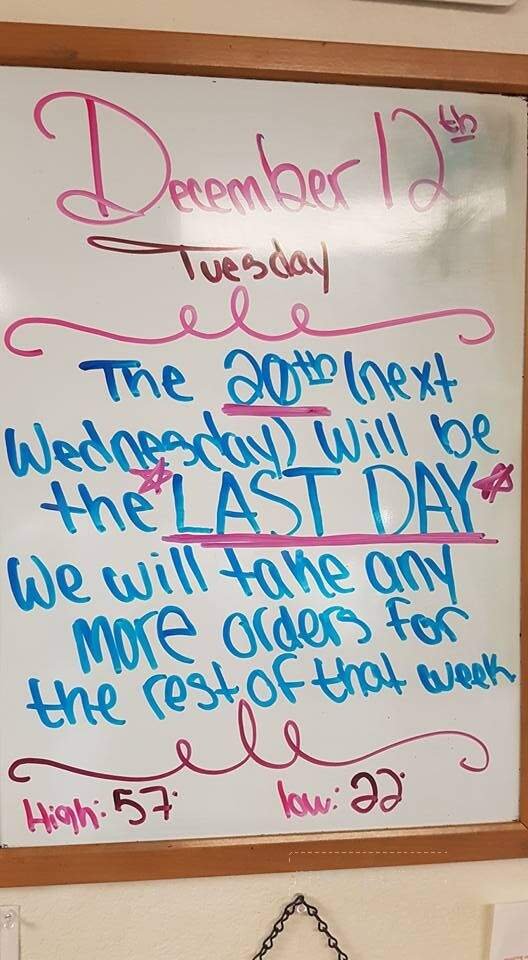 December 12th
Tuesday
The 20th (next
Wednesday) will be
the *LAST DAY*
We will take any
more orders for
the rest of that week
High: 57° low: 22°